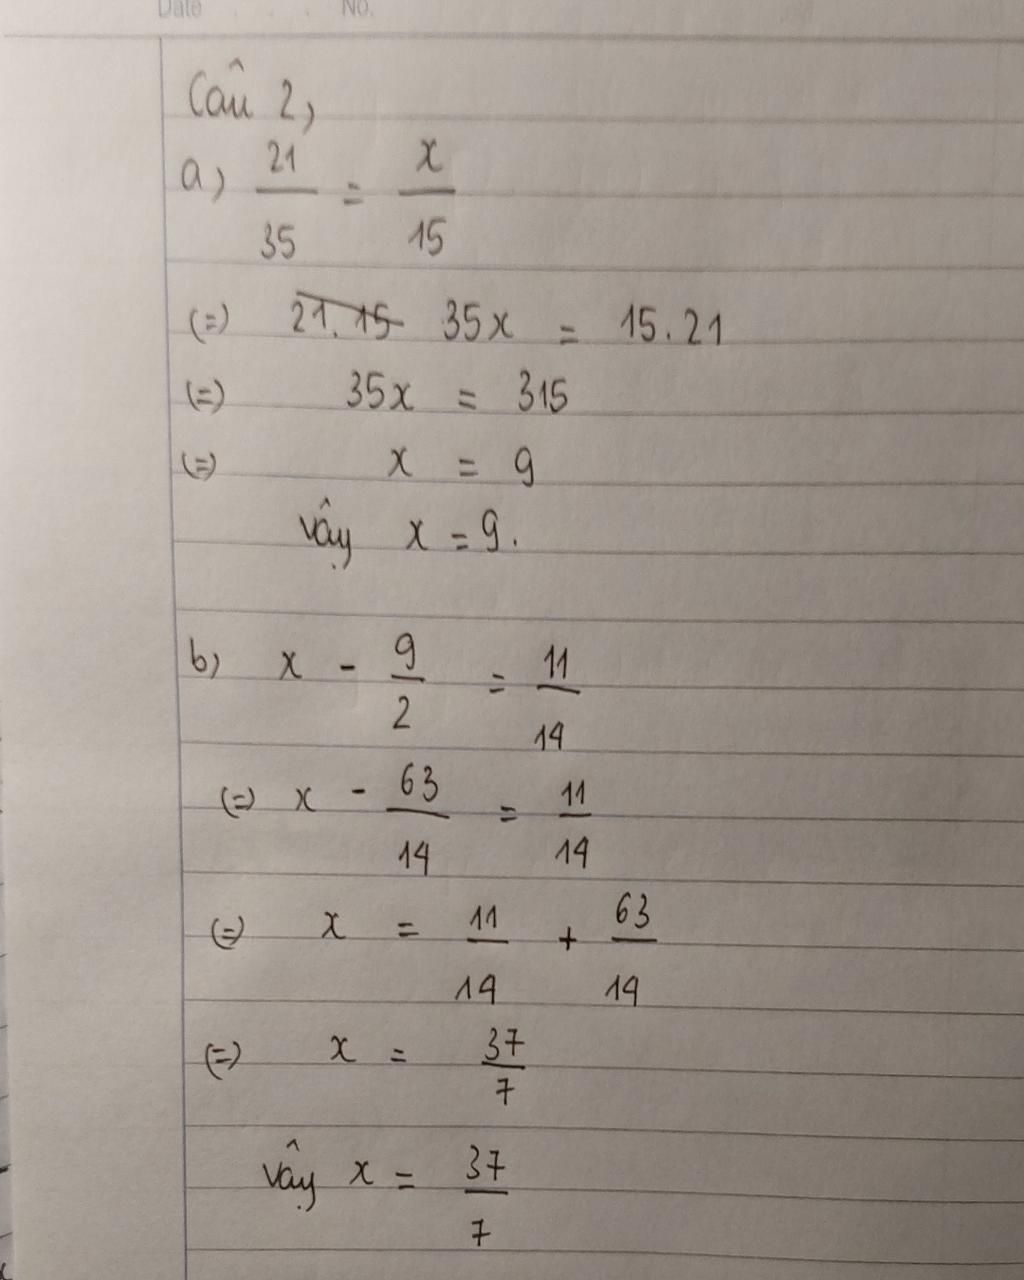 Date . . . No.
Câu 2,
a, 21/35 = x/15
(=) ~~21.15~~ 35x = 15.21
(=) 35x = 315
(=) x = 9
vậy x = 9.
b, x - 9/2 = 11/14
(=) x - 63/14 = 11/14
(=) x = 11/14 + 63/14
(=) x = 37/7
vậy x = 37/7